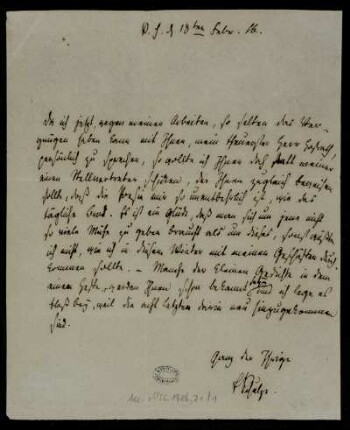 d. 18ten Febr. 16.
Da ich jetzt, wegen meinen Arbeiten, so selten das Ver-
gnügen haben kann mit Ihnen, mein theuerster Herr
persönlich zu sprechen, so wollte ich Ihnen doch statt meiner
einen Stellvertreter schicken, der Ihnen zugleich beweisen
sollte, daß die Poesie mir so unentbehrlich ist, wie das
tägliche Brod. Es ist ein Glück, daß man sich um jene nicht
so viele Mühe zu geben braucht als um dieses, sonst wüßte
ich nicht, wie ich in diesem Winter mit meinen Geschäften durch-
kommen sollte. – Manche der kleinen Gedichte in dem
einen Hefte, werden Ihnen schon bekannt seyn und ich lege es
bloß bey, weil die acht letzten darin neu hinzugekommen
sind.
Ganz der Ihrige
ESchulze.